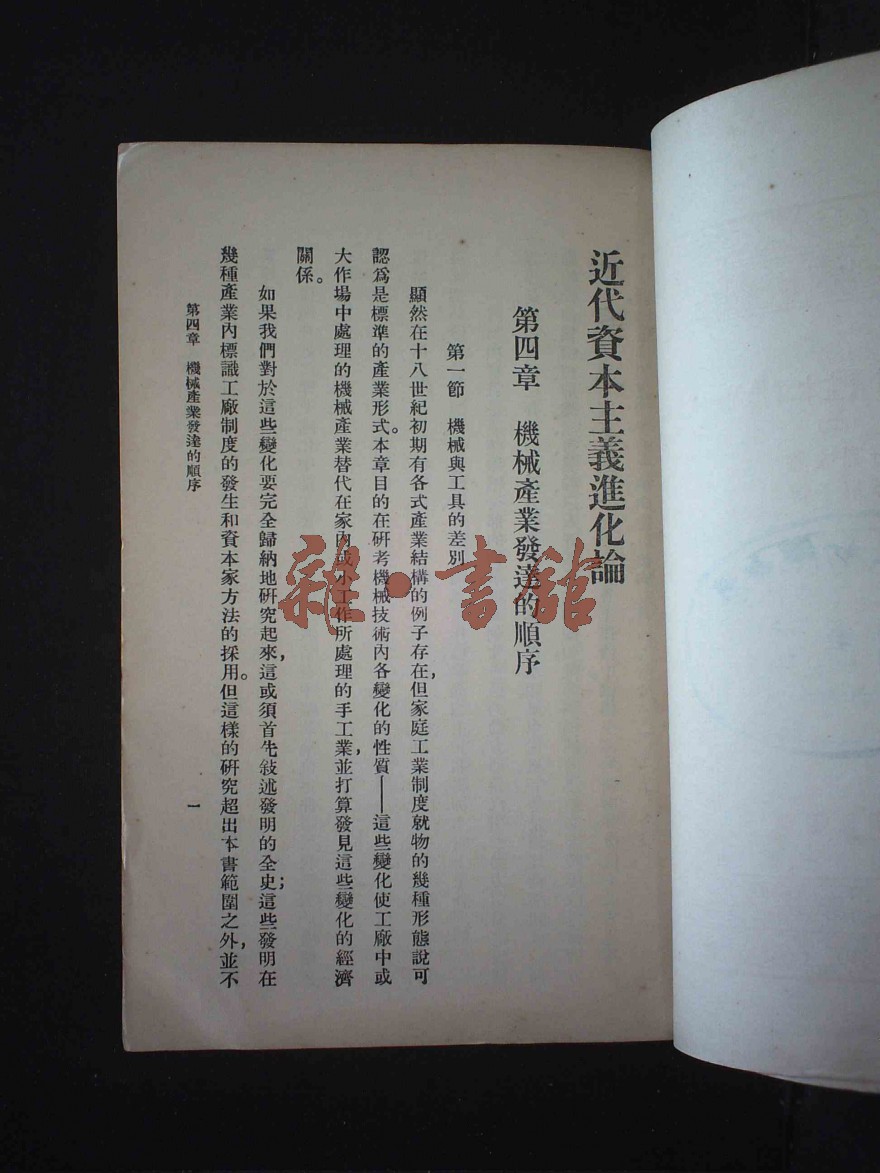 近代資本主義進化論
第四章　機械產業發達的順序
第一節　機械與工具的差別
顯然在十八世紀初期有各式產業結構的例子存在，但家庭工業制度就物的幾種形態說可
認爲是標準的產業形式。本章目的在硏考機械技術內各變化的性質——這些變化使工廠中或
大作場中處理的機械產業替代在家內或小工作所處理的手工業，並打算發見這些變化的經濟
關係。
如果我們對於這些變化要完全歸納地硏究起來，這或須首先敍述發明的全史；這些發明在
幾種產業內標識工廠制度的發生和資本家方法的採用。但這樣的硏究超出本書範圍之外，並不
第四章　機械產業發達的順序
一
雜·書館